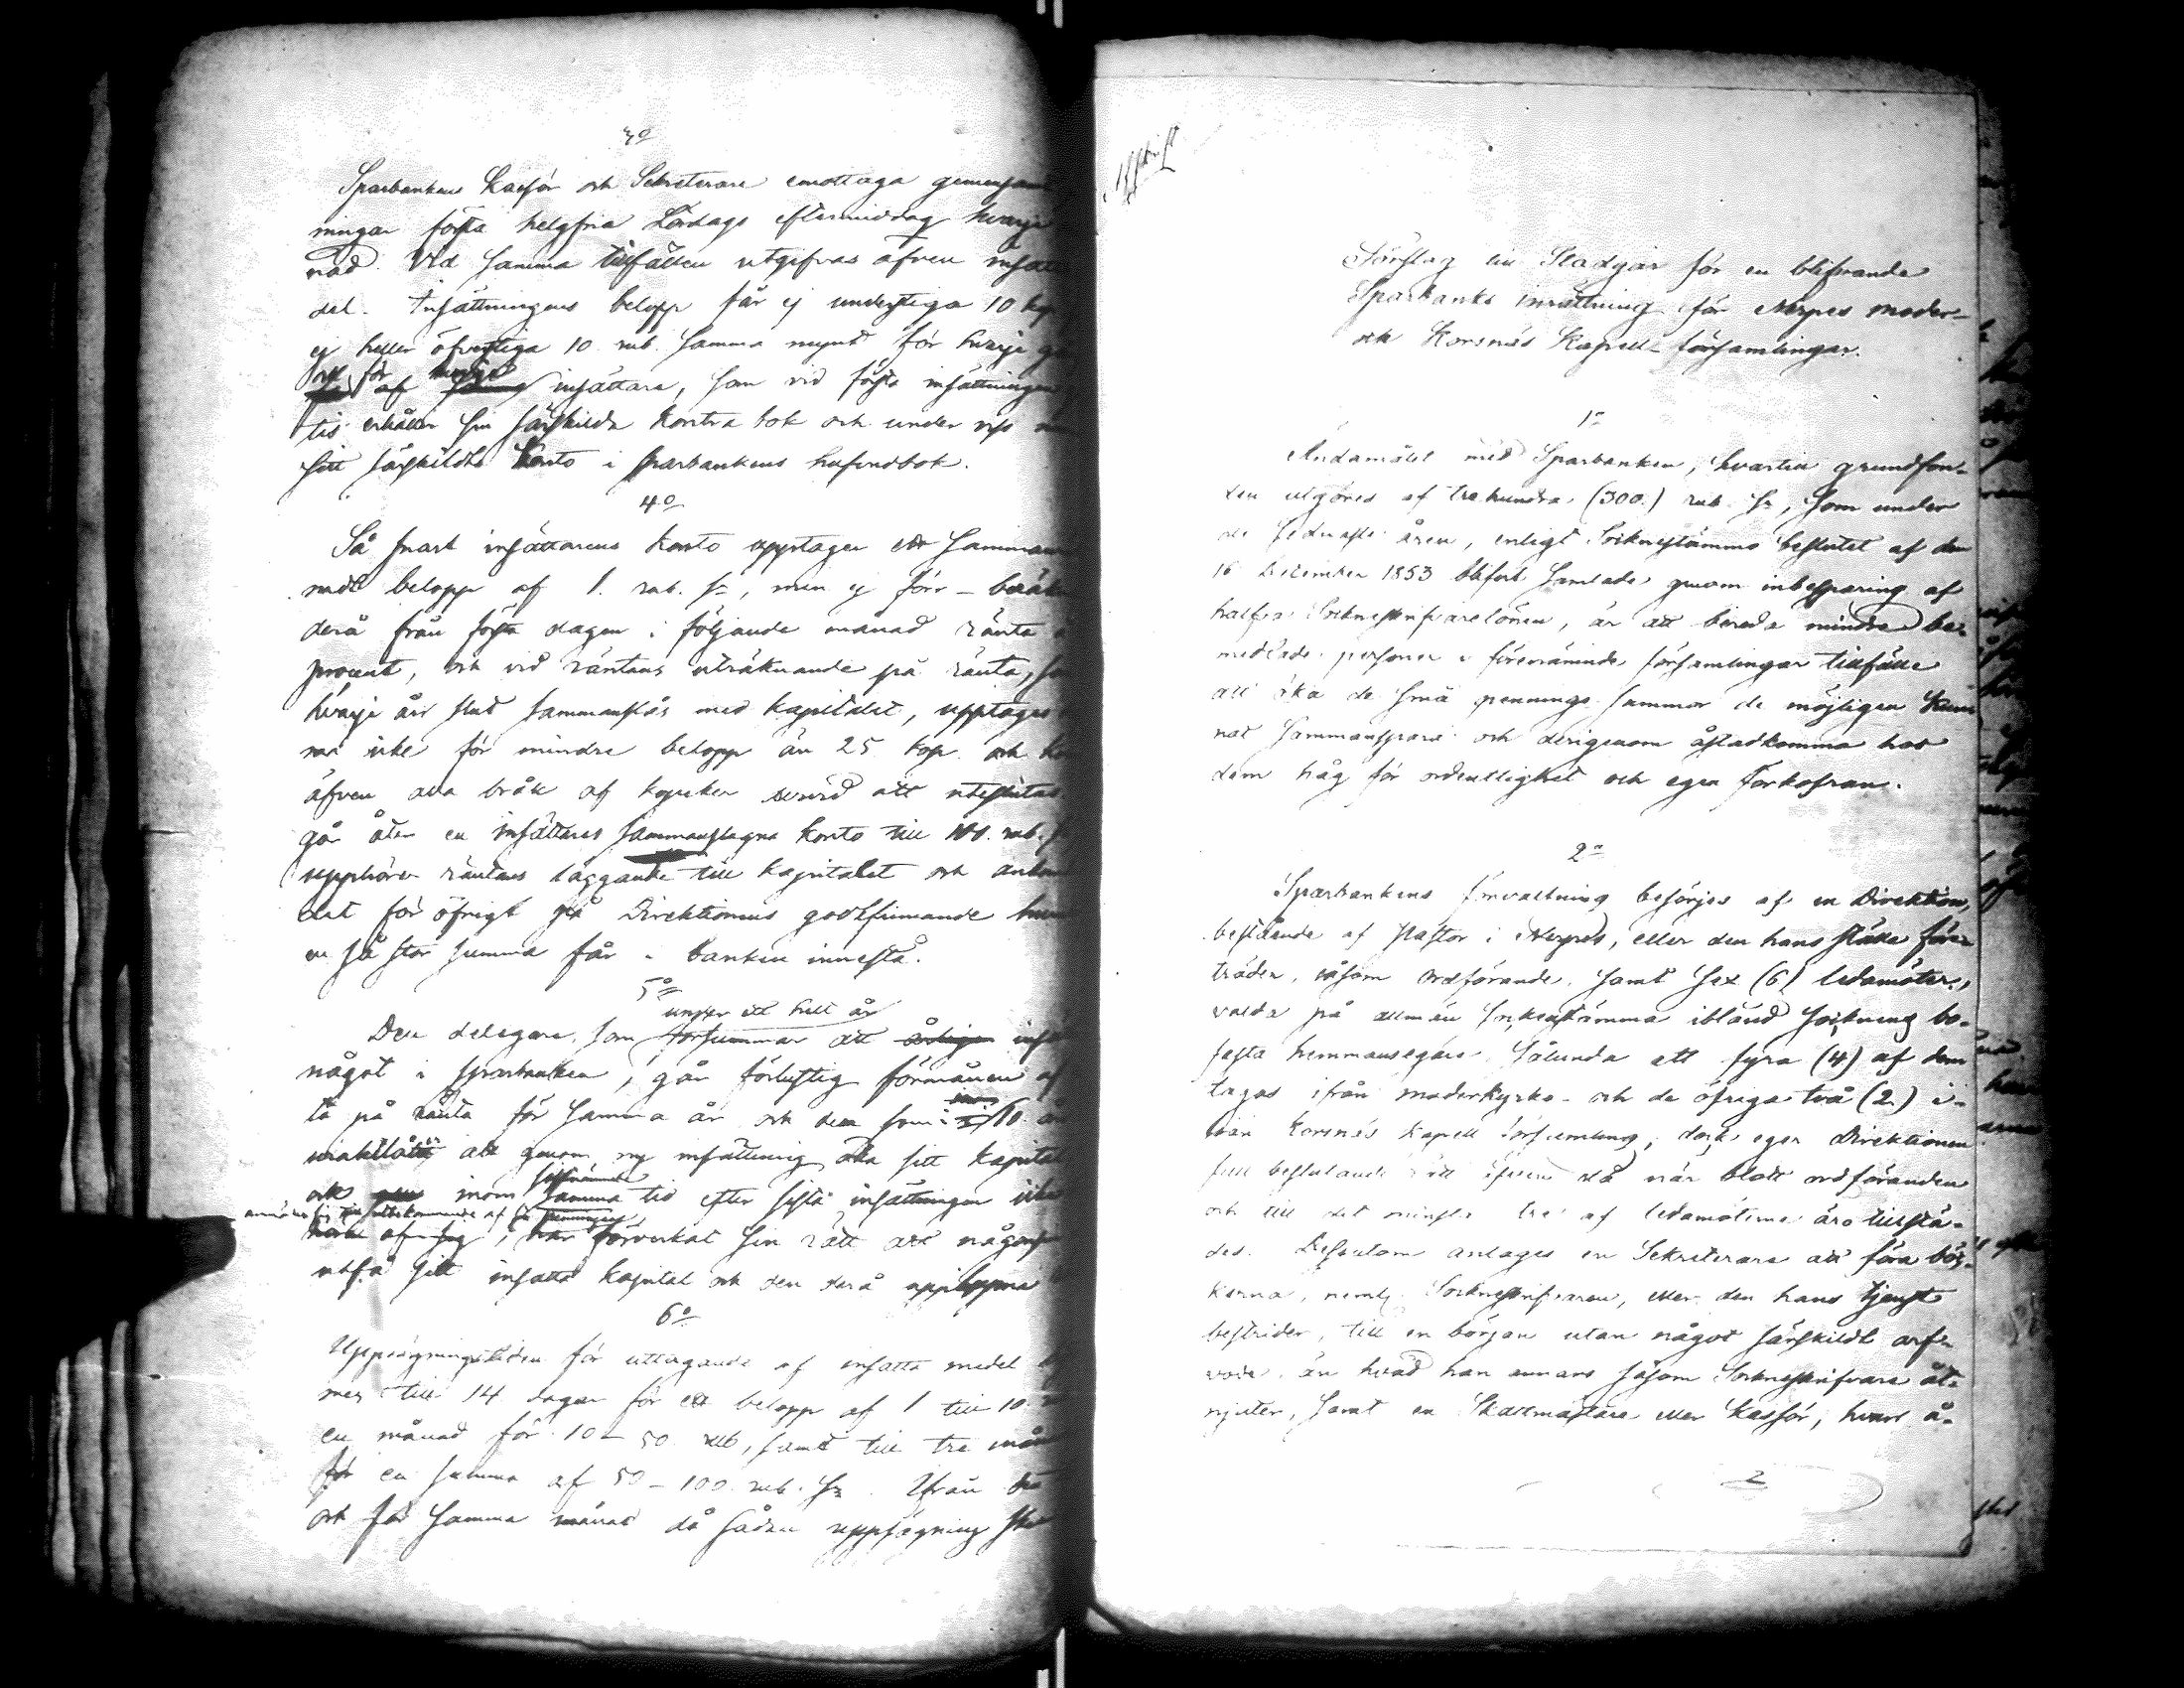 3o
Sparbankens Kassör och Sekreterare emottaga gemensamt
ningar första helgfria Lördags eftermiddag hvarje
nad. Vid samma tillfällen utgifvas äfven insatta
del. Insättningens belopp får ej understiga 10 kop
ej heller öfverstiga 10 rub. samma mynt för hvarje
och för hvarje
af samma insättare, som vid första insättningen
tis erhåller sin särskilda kontra bok och under viss
sitt särskildta Konto i sparbankens hufvudbok.
4o
Så snart insättarens konto upptager ett samman
nadt belopp af 1. rub. sr, men ej förr – beräknas
derå från första dagen i följande månad ränta
procent, och vid räntans uträknande på ränta,
hvarje års slut sammanslås med kapitalet, upptages
icke för mindre belopp än 25 kop. och
äfven alla bråk af kopeker dervid att uteslutas
går åter en insättares sammanslagna konto till 100. rub.
upphörer räntans läggande till kapitalet och ankom
det för öfrigt på Direktionens godtfinnande
en så stor summa får i banken innestå.
5o
under ett helt år
Den delegare, som försummar att årligen
något i sparbanken, går förlustig förmånen af
ta på ränta för samma år och den som inom 10 år
att genom ny insättning öka sitt kapital
sistnämnde
och inom samma tid efter sista insättningen icke
anmäler sig till utbekommande af penningar
, har förverkat sin rätt att någonsin
utfå sitt insatta kapital och den derå upplupna
6o
Uppsägningstiden för uttagande af insatta medel
mes till 14 dagar för ett belopp af 1 till 10
en månad för 10 – 50 rub, samt till tre mån
för en summa af 50 – 100 rub. Sr. Ifrån
och för samma månad då sådan uppsägning sker
Afskrift
Förslag till Stadgar för en blifvande
Sparbanks inrättning för Nerpes moder-
och Korsnäs Kapell-församlingar.
1o
Ändamålet med Sparbanken, hvartill grundfon-
den utgöres af trehundra (300.) rub. Sr, som under
de sednaste åren, enligt Sockenstämmo beslutet af den
16 December 1853 blifvit samlade genom inbesparing af
halfva Sockneskrifvarelönen, är att bereda mindre be-
medlade personer i förenämnde församlingar tillfälle
att öka de små pennings summor de möjligen kun-
nat sammanspara och derigenom åstadkomma hos
dem håg för ordentlighet och egen förkofran.
2o
Sparbankens förvaltning besörjes af en Direktion,
bestående af Pastor i Nerpes, eller den hans ställe före-
träder, såsom ordförande, samt sex (6) ledamöter,
valda på allmän sockenstämma ibland socknens bo-
fasta hemmansegare. Sålunda att fyra (4) af dem
tagas ifrån moderkyrko- och de öfriga två (2) i-
från Korsnäs kapell församling; dock eger Direktionen
full beslutande rätt äfven då när blott ordföranden
och till det minsta tre af ledamöterna äro tillstä-
des. Dessutom antages en Sekreterare att föra böc-
kerna, neml. Sockneskrifvaren, eller den hans tjenst
bestrider, till en början utan något särskildt arf-
vode, än hvad han annars såsom Sockneskrifvare åt-
njuter, samt en Skattmästare eller Kassör, hvars å-
2